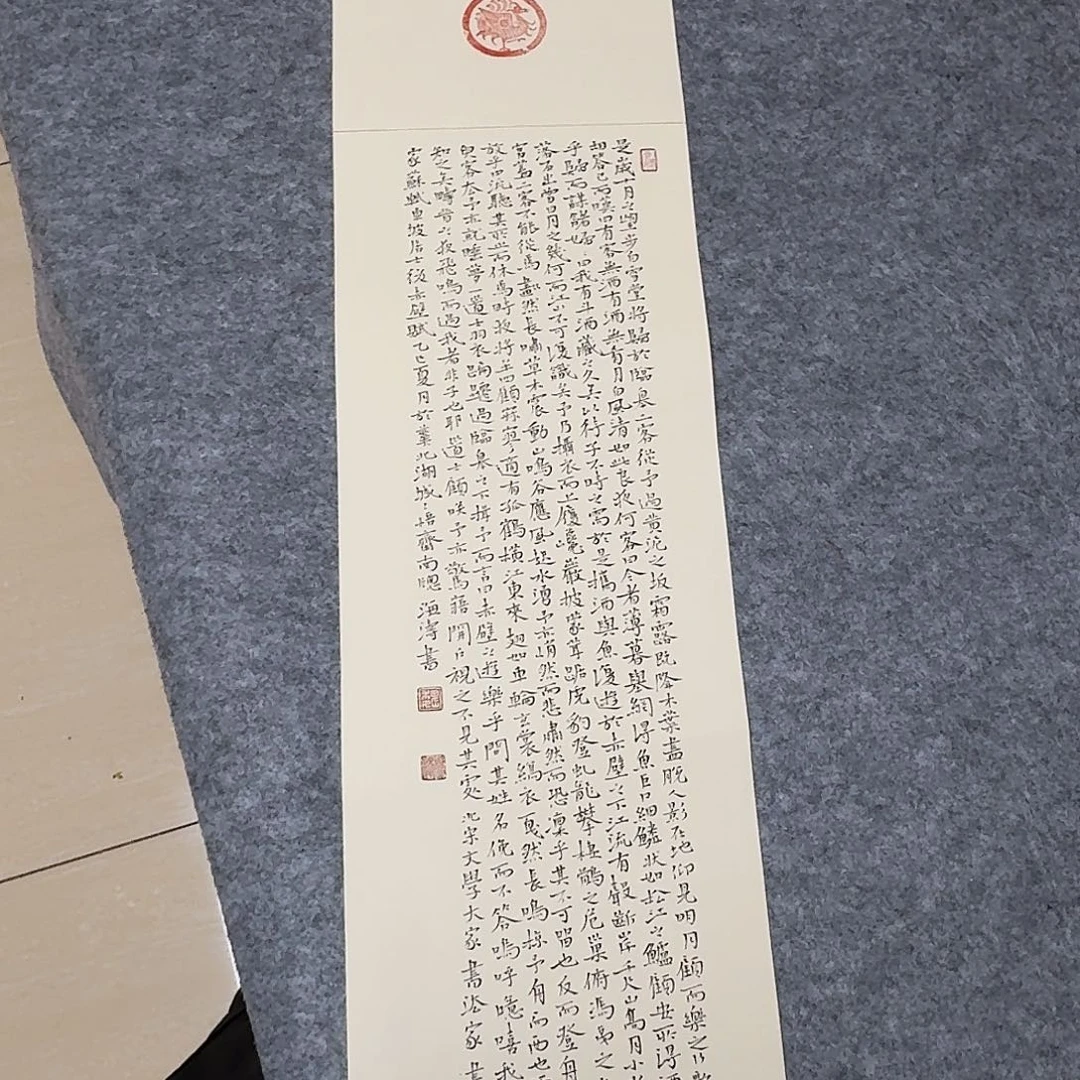 是歲十月之望步自雪堂將歸於臨皋二客從予過黃泥之坂霜露既降木葉盡脫人影在地仰見明月顧而樂之行歌
相答已而嘆曰有客無酒有酒無肴月白風清如此良夜何客曰今者薄暮舉網得魚巨口細鱗狀如松江之鱸顧安所得酒
乎歸而謀諸婦婦曰我有斗酒藏之久矣以待子不時之需於是攜酒與魚復遊於赤壁之下江流有聲斷岸千尺山高月小水
落石出曾日月之幾何而江山不可復識矣予乃攝衣而上履巉巖披蒙茸踞虎豹登虬龍攀栖鶻之危巢俯馮夷之
宮蓋二客不能從焉劃然長嘯草木震動山鳴谷應風起水湧予亦悄然而悲肅然而恐凜乎其不可留也反而登舟
放乎中流聽其所止而休焉時夜將半四顧寂寥適有孤鶴橫江東來翅如車輪玄裳縞衣戛然長鳴掠予舟而西也
臾客去予亦就睡夢一道士羽衣蹁躚過臨皋之下揖予而言曰赤壁之遊樂乎問其姓名俛而不答嗚呼噫嘻我
知之矣疇昔之夜飛鳴而過我者非子也耶道士顧笑予亦驚寤開戶視之不見其處北宋文學大家書法家
家蘇軾東坡居士後赤壁賦乙巳夏月於北湖城悟齋南窗海濤書